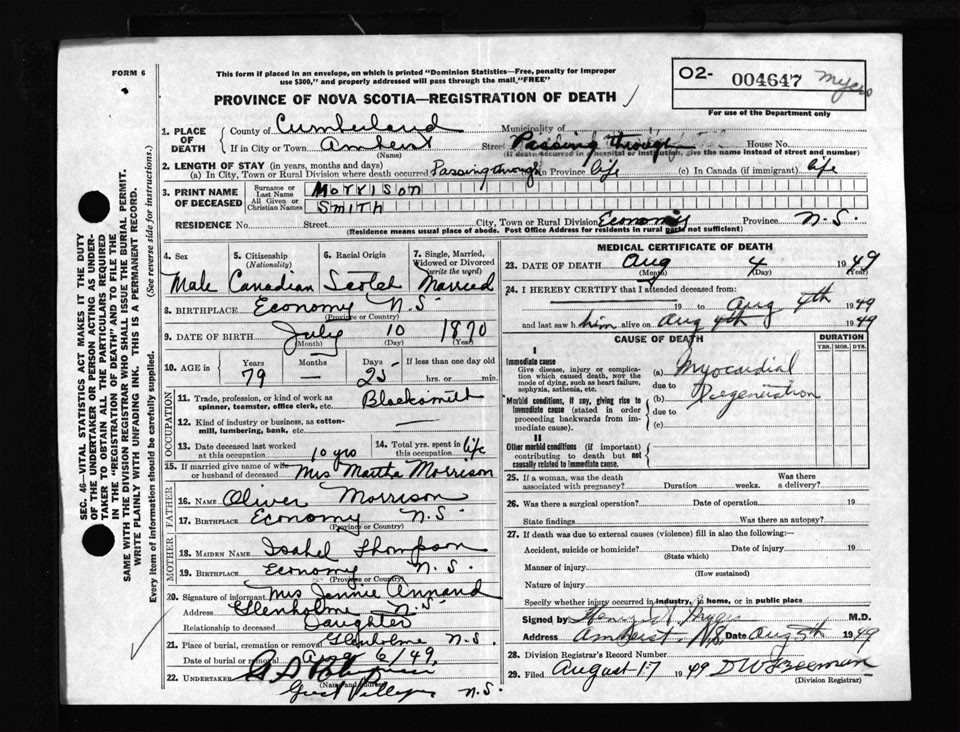 FORM 6
This form if placed in an envelope, on which is printed "Dominion Statistics—Free, penalty for improper
use $300," and properly addressed will pass through the mail "FREE"
O2- 004647 Myers
For use of the Department only
PROVINCE OF NOVA SCOTIA—REGISTRATION OF DEATH
1. PLACE OF DEATH
County of Cumberland Municipality of
If in City or Town Amherst Street Passing through House No.
(Name) (If death occurred in a hospital or institution, give the name instead of street and number)
2. LENGTH OF STAY (in years, months and days)
(a) In City, Town or Rural Division where death occurred Passing through In Province life (c) In Canada (if immigrant) life
3. PRINT NAME OF DECEASED
Surname or Last Name Morrison
All Given or Christian Names SMITH
RESIDENCE No. Street City, Town or Rural Division Economy Province N.S.
(Residence means usual place of abode. Post Office Address for residents in rural parts not sufficient)
4. Sex 5. Citizenship (Nationality) 6. Racial Origin 7. Single, Married, Widowed or Divorced (write the word)
Male Canadian Scotch Married
8. BIRTHPLACE Economy N.S.
(Province or Country)
9. DATE OF BIRTH July 10 1870
(Month) (Day) (Year)
10. AGE in Years Months Days If less than one day old
79 — 25 hrs. or min.
OCCUPATION
11. Trade, profession, or kind of work as spinner, teamster, office clerk, etc. Blacksmith
12. Kind of industry or business, as cotton-mill, lumbering, bank, etc. —
13. Date deceased last worked at this occupation 10 yrs 14. Total yrs. spent in this occupation life
15. If married give name of wife or husband of deceased Mrs Martha Morrison
FATHER
16. NAME Oliver Morrison
17. BIRTHPLACE Economy N.S.
(Province or Country)
MOTHER
18. MAIDEN NAME Isabel Thompson
19. BIRTHPLACE Economy N.S.
(Province or Country)
20. Signature of informant Mrs Jennie Annand
Address Glenholme N.S.
Relationship to deceased Daughter
21. Place of burial, cremation or removal Glenholme N.S.
Date of burial or removal Aug 6/49
22. UNDERTAKER
(Name and Address)
N.S.
MEDICAL CERTIFICATE OF DEATH
23. DATE OF DEATH Aug 4 1949
(Month) (Day) (Year)
24. I HEREBY CERTIFY that I attended deceased from:
19 to Aug 4th 1949
and last saw him alive on Aug 4th 1949
CAUSE OF DEATH DURATION
YRS. MOS. DYS.
I
Immediate cause
Give disease, injury or complication which caused death, not the mode of dying, such as heart failure, asphyxia, asthenia, etc.
(a) Myocardial
due to
Morbid conditions, if any, giving rise to immediate cause (stated in order proceeding backwards from immediate cause).
(b) Degeneration
due to
(c)
II
Other morbid conditions (if important) contributing to death but not causally related to immediate cause.
25. If a woman, was the death associated with pregnancy? Duration weeks. Was there a delivery?
26. Was there a surgical operation? Date of operation 19
State findings Was there an autopsy?
27. If death was due to external causes (violence) fill in also the following:
Accident, suicide or homicide? Date of injury 19
(State which)
Manner of injury
(How sustained)
Nature of injury
Specify whether injury occurred in industry, in home, or in public place
Signed by M.D.
Address Amherst N.S. Date Aug 5th 1949
28. Division Registrar's Record Number
29. Filed August 17 1949
(Division Registrar)
SEC. 46—VITAL STATISTICS ACT MAKES IT THE DUTY
OF THE UNDERTAKER OR PERSON ACTING AS UNDER-
TAKER TO OBTAIN ALL THE PARTICULARS REQUIRED
IN THE "REGISTRATION OF DEATH" AND TO FILE THE
SAME WITH THE DIVISION REGISTRAR WHO SHALL ISSUE THE BURIAL PERMIT.
WRITE PLAINLY WITH UNFADING INK. THIS IS A PERMANENT RECORD.
Every item of information should be carefully supplied. (See reverse side for instructions.)